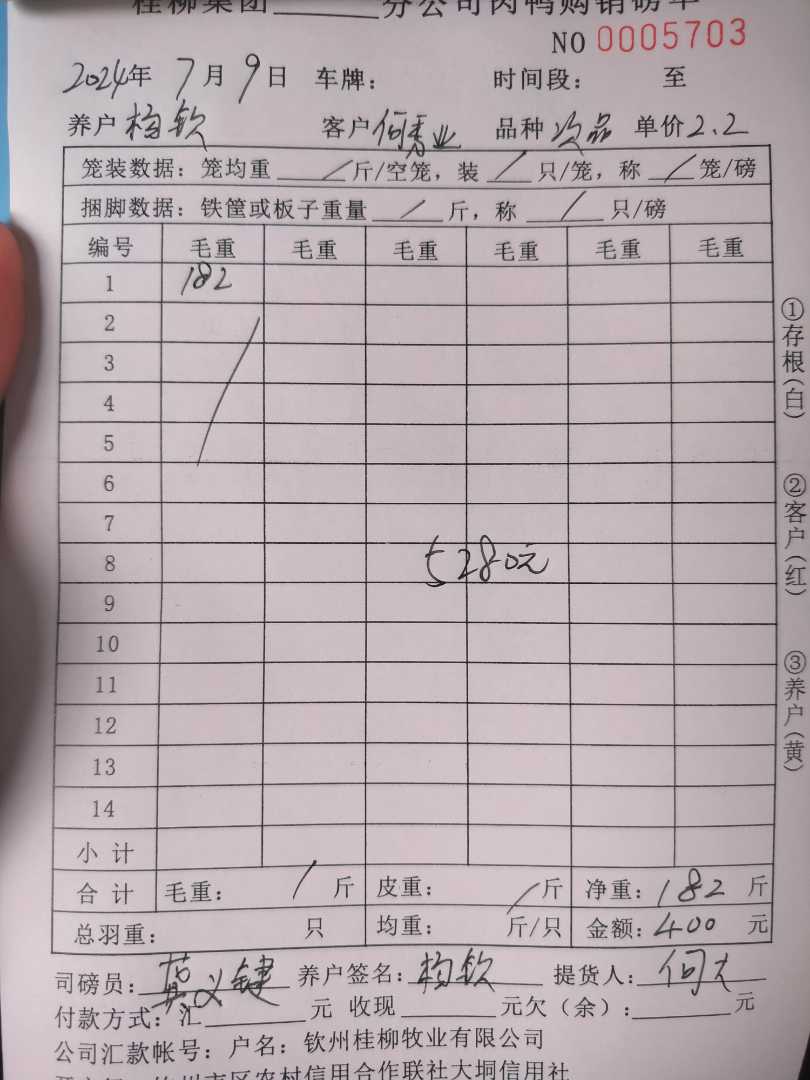 桂柳集团______分公司肉鸭购销磅单
NO 0005703
2024年 7月9日 车牌： 时间段： 至
养户 杨钦 客户 何秀业 品种 次品 单价 2.2
笼装数据：笼均重 / 斤/空笼，装 / 只/笼，称 / 笼/磅
捆脚数据：铁筐或板子重量 / 斤，称 / 只/磅
编号 毛重 毛重 毛重 毛重 毛重 毛重
1 182
2
3
4
5
6
7
8 5280元
9
10
11
12
13
14
小计
合计 毛重： / 斤 皮重： / 斤 净重：182 斤
总羽重： 只 均重： 斤/只 金额：400 元
司磅员： 义键 养户签名：杨钦 提货人：何大
付款方式：汇______元 收现______元欠（余）：______元
公司汇款帐号：户名：钦州桂柳牧业有限公司
市区农村信用合作联社大垌信用社
①存根（白）
②客户（红）
③养户（黄）